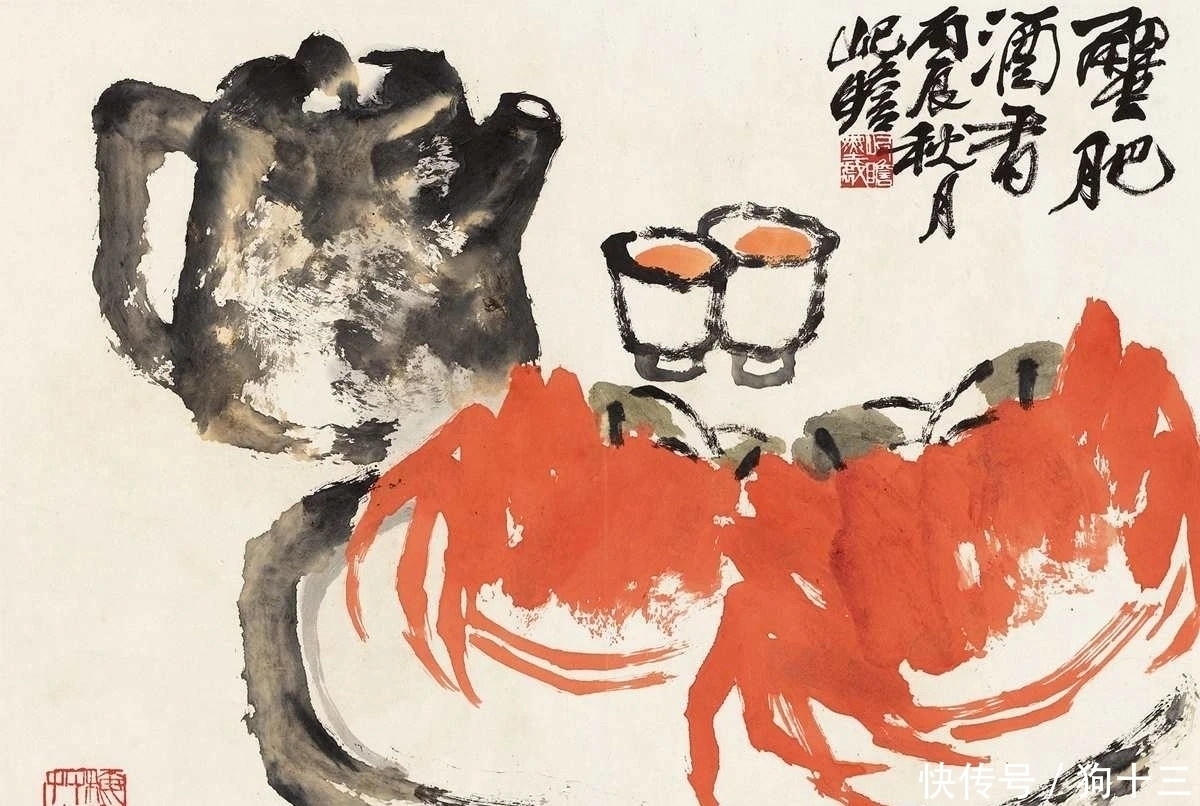 蟹肥
酒香
丙辰秋月
屺瞻
快传号 / 狗十三